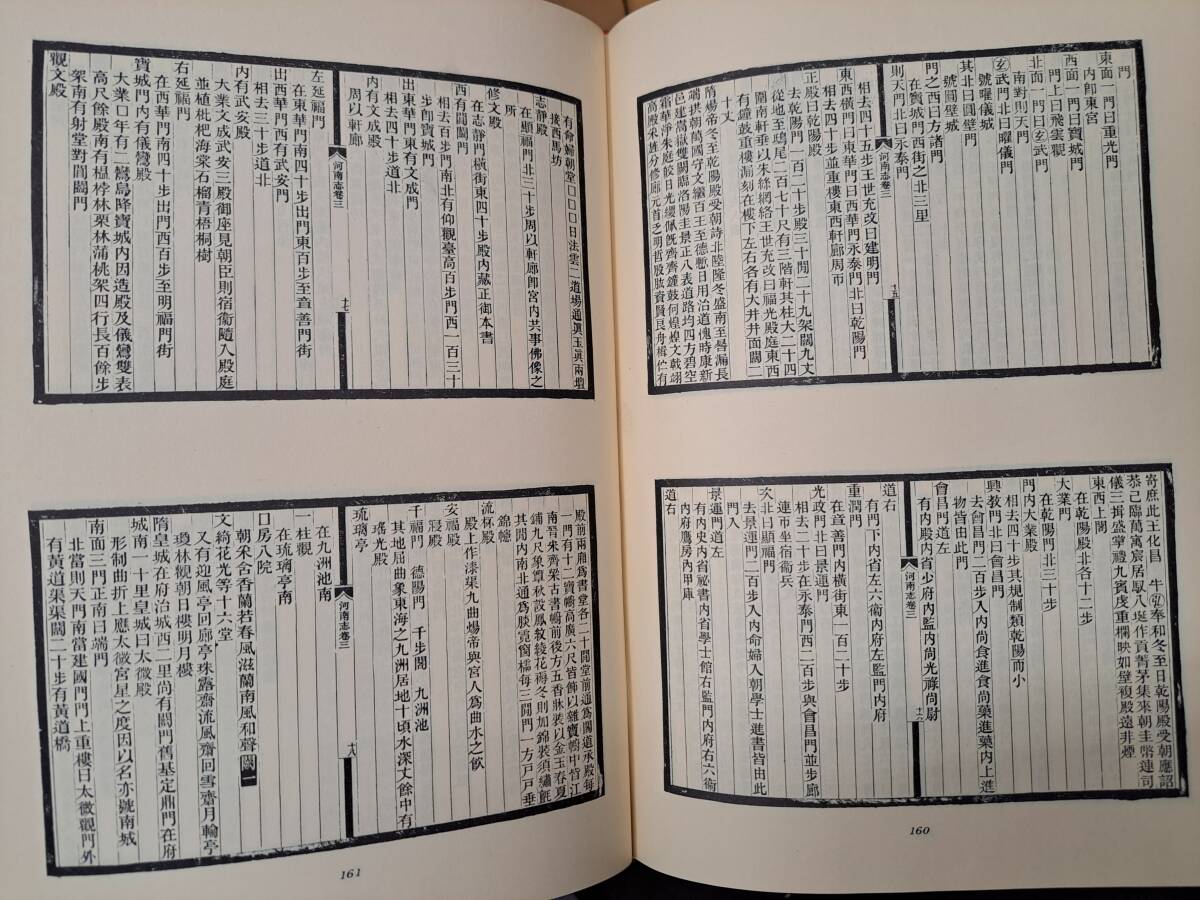 門
東面一門曰重光門
内卽東宮
西面一門曰寶城門
門上曰飛雲觀
北面一門曰玄武門
南對則天門
玄武門北曰曜儀門
號曜儀城
其北曰圓壁門
號圓壁城
門之西曰方諸門
在寶城門西街之北三里
則天門北曰永泰門
河南志卷三
十五
相去四十五步王世充改曰建明門
東西橫門曰東華門曰西華門永泰門北曰乾陽門
相去四十步並重樓東西軒廊周帀
正殿曰乾陽殿
去乾陽門一百二十步殿三十閒二十九架闊九丈
從地至鴟尾二百七十尺有三階軒其柱大二十四
圍南軒垂以朱絲網絡王世充改曰福光殿庭東西
有鐘鼓重樓漏刻在樓下左右各有大井井面闊二
十丈
隋煬帝冬至乾陽殿受朝詩北陸隆冬盛南至晷漏長
端拱朝萬國守文繼百王至德慙日用治道愧時康新
邑建嵩嶽雙闕臨洛陽圭景正八表道路均四方碧空
霜華淨朱庭皎日光纓佩旣濟濟鐘鼓何煌煌文戟翊
高殿朱旄分修廊元首乏明哲股肱資賢良舟楫佇有
寄庶此王化昌　牛弘奉和冬至日乾陽殿受朝應詔
恭己臨萬寓宸居馭八埏作貢菁茅集來朝圭幣連司
儀三揖盛掌禮九賓虔重欄映如壁複殿遠非煙
東西上閤
在乾陽殿北各十二步
大業門
在乾陽門北三十步
門内大業殿
相去四十步其規制類乾陽而小
興教門北曰會昌門
去會昌門二百步入内尙食進食尙藥進藥内上進
物皆由此門
會昌門道左
有内殿内省少府内監内尙光祿尙尉
河南志卷三
十六
道右
有門下内省左六衞内府左監門内府
重潤門
在章善門内橫街東一百二十步
光政門北曰景運門
相去二十步在永泰門西二百步與會昌門並步廊
連帀坐宿衞兵
次北曰顯福門
去景運門二百步入内命婦入朝學士進書皆由此
門入
景運門道左
有内史内省祕書内省學士館右監門内府右六衞
内府鷹房内甲庫
道右
160
有命婦朝堂口口口日法雲二道場通眞玉眞兩壇
接西馬坊
志靜殿
在顯福門北三十步周以軒廊卽宮内共事佛像之
所
修文殿
在志靜門橫街東四十步殿内藏正御本書
西有閶闔門
相去百步門南北有仰觀臺高百步門西一百三十
步卽寶城門
出東華門東有文成門
相去四十步道北
内有文成殿
周以軒廊
河南志卷三
十七
左延福門
在東華門南四十步出門東百步至章善門街
出西華門西有武安門
相去三十步道北
内有武安殿
大業文成武安三殿御座見朝臣則宿衞隨入殿庭
並植枇杷海棠石榴靑梧桐樹
右延福門
在西華門南四十步出門西百步至明福門街
寶城門内有儀鸞殿
大業口年有二鸞鳥降寶城内因造殿及儀鸞雙表
高尺餘殿南有榅桲林栗林蒲桃架四行長百餘步
架南有射堂對閶闔門
觀文殿
殿前兩廂爲書堂各二十閒堂前通爲閣道承殿每
一門有十二寶幮高廣六尺皆飾以雜寶幮中皆江
南晉朱齊梁古書幮前後方五香牀裝以金玉春夏
鋪九尺象簟秋設鳳紋綾花褥冬則加錦裝須繡氈
其閒内南北通爲朥䆫櫺每三閒門一方戶戶垂
錦幰
流杯殿
殿上作漆渠九曲煬帝與宮人爲曲水之飮
安福殿
寢殿
千福門　德陽門　千步閣　九洲池
其地屈曲象東海之九洲居地十頃水深丈餘中有
瑤光殿
琉璃亭
河南志卷三
十八
在九洲池南
一柱觀
在琉璃亭南
口房八院
朝采舍香蘭若春風滋蘭南風和聲闕一
文綺花光等十六堂
又有迎風亭回廊亭珠露齋流風齋回雪齋月輪亭
瓊林觀朝日樓明月樓
隋皇城在府治城西二里尙有闕門舊基定鼎門在府
城南一十里皇城曰太微殿
形制曲折上應太微宮星之度因以名亦號南城
南面三門正南曰端門
北當則天門南當建國門門上重樓曰太微觀門外
有黃道渠渠闊二十步有黃道橋
161